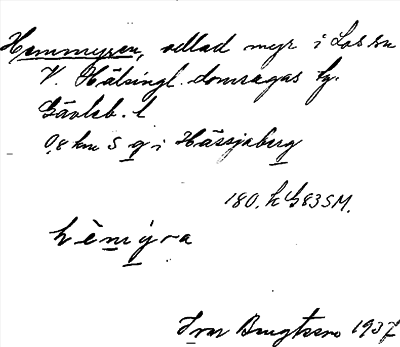 Hemmyran, odlad myr i Los sn
V. Hälsingl. domsagas tg.
Gävleb. l
0,8 km S g i Hässjaberg
180. h G 83 SM.
hèmýra
Ivar Bengtsson 1937